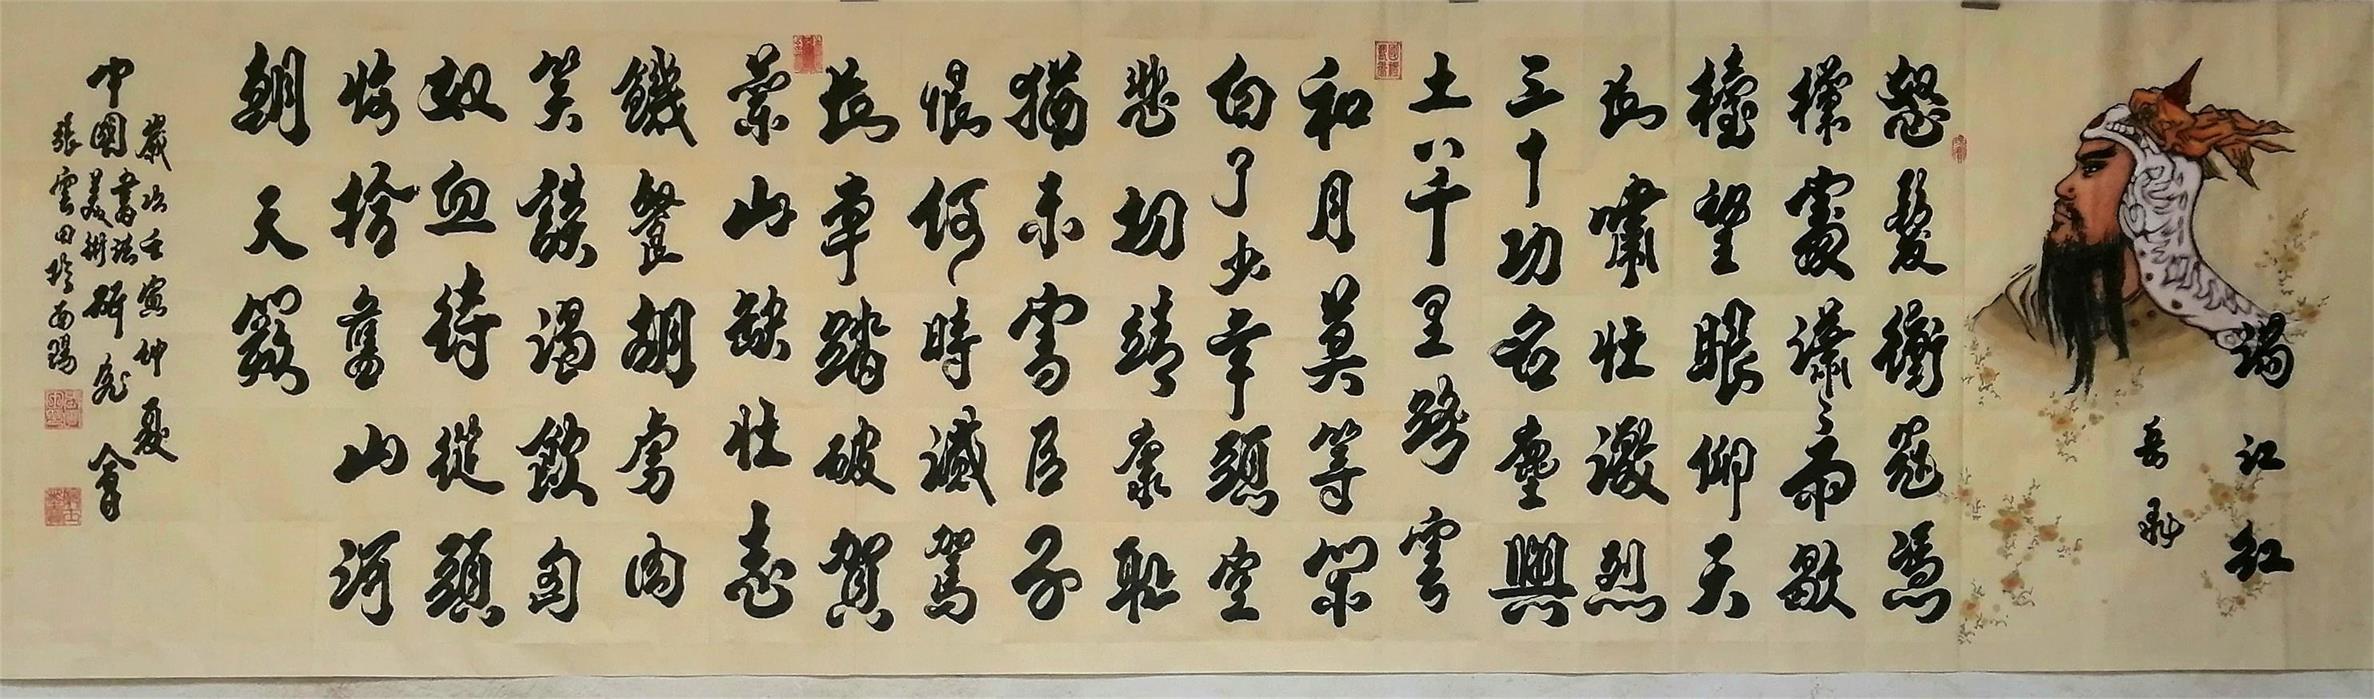 滿江紅
岳飛
怒髮衝冠憑
欄處瀟瀟雨歇
擡望眼仰天
長嘯壯激烈
三十功名塵與
土八千里路雲
和月莫等閑
白了少年頭空
悲切靖康恥
猶未雪臣子
恨何時滅駕
長車踏破賀
蘭山缺壯志
饑餐胡虜肉
笑談渴飲匈
奴血待從頭
收拾舊山河
朝天闕
歲次壬寅仲夏
中國書法美術研究會
張雲田於南陽